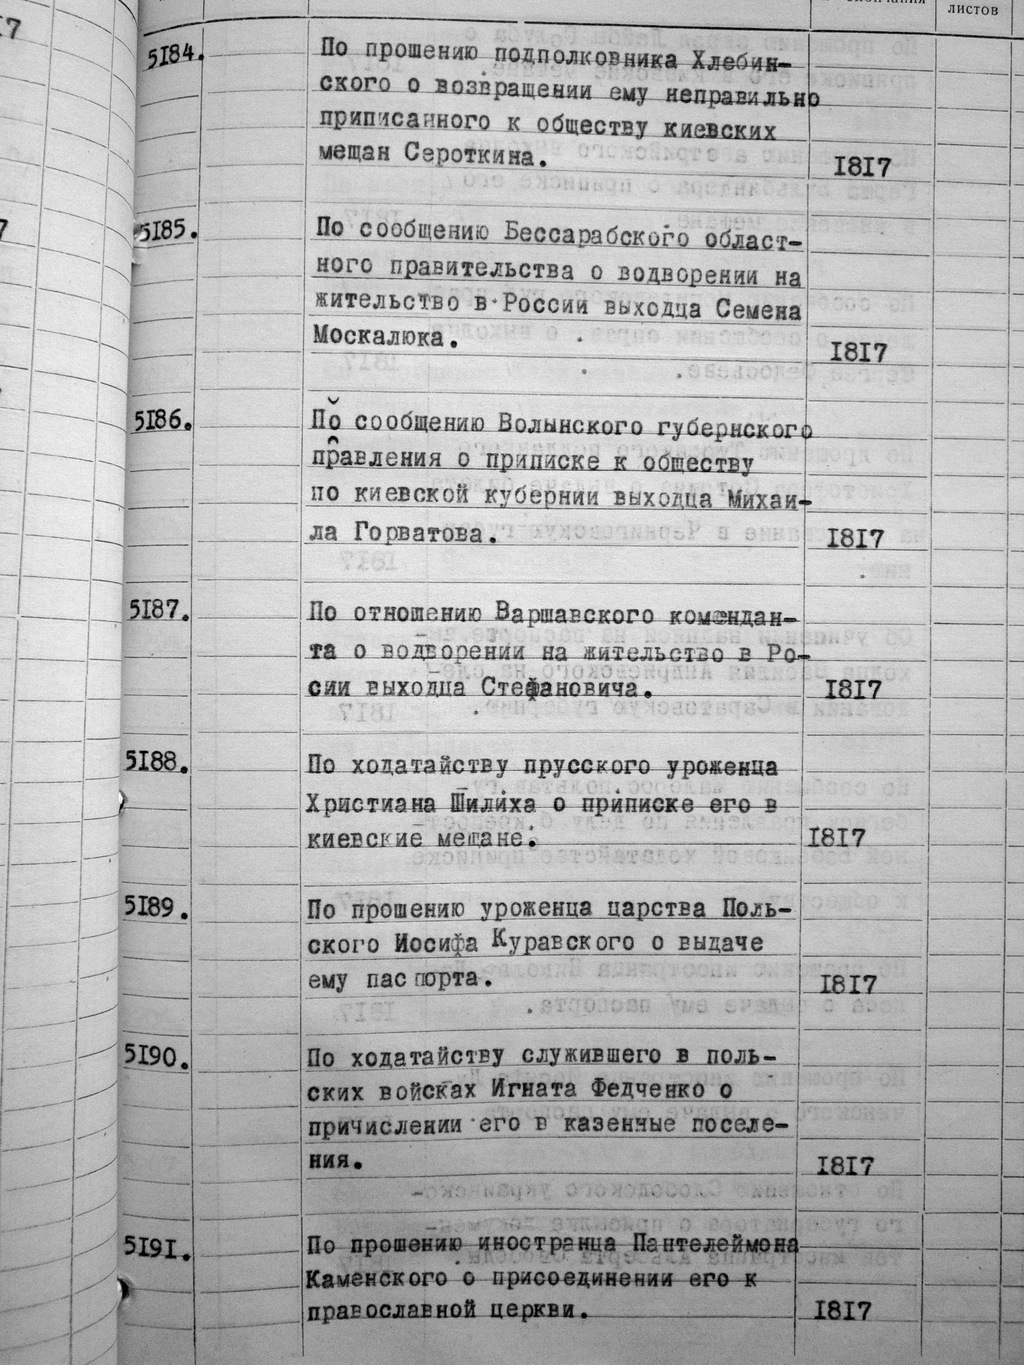 листов
5184.
По прошению подполковника Хлебин-
ского о возвращении ему неправильно
приписанного к обществу киевских
мещан Сероткина.
1817
5185.
По сообщению Бессарабского област-
ного правительства о водворении на
жительство в России выходца Семена
Москалюка.
1817
5186.
По сообщению Волынского губернского
правления о приписке к обществу
по киевской кубернии выходца Михаи-
ла Горватова.
1817
5187.
По отношению Варшавского комендан-
та о водворении на жительство в Ро-
сии выходца Стефановича.
1817
5188.
По ходатайству прусского уроженца
Христиана Шилиха о приписке его в
киевские мещане.
1817
5189.
По прошению уроженца царства Поль-
ского Иосифа Куравского о выдаче
ему паспорта.
1817
5190.
По ходатайству служившего в поль-
ских войсках Игната Федченко о
причислении его в казенные поселе-
ния.
1817
5191.
По прошению иностранца Пантелеймона
Каменского о присоединении его к
православной церкви.
1817